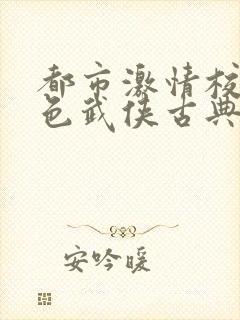 都市激情校
色武侠古典
安吟暖